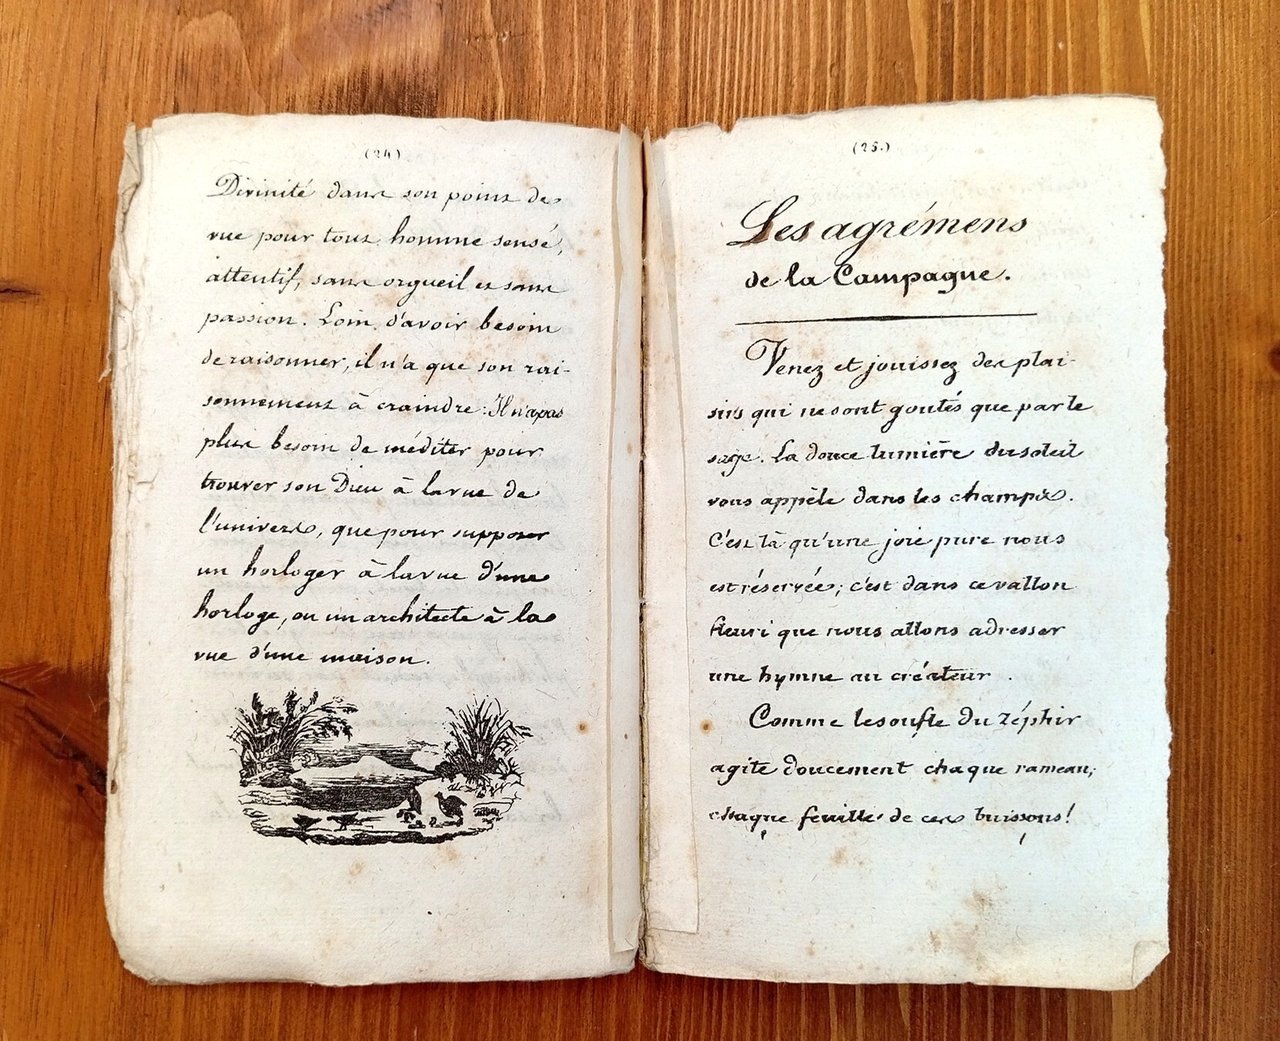 (24)
Divinité dans son point de
vue pour tout homme sensé,
attentif, sans orgueil et sans
passion. Loin d'avoir besoin
de raisonner, il n'a que son rai-
sonnement à craindre. Il n'a pas
plus besoin de méditer pour
trouver son Dieu à la vue de
l'univers, que pour supposer
un horloger à la vue d'une
horloge, ou un architecte à la
vue d'une maison.
(25.)
Les agrémens
de la Campagne.
Venez et jouissez des plai-
sirs qui ne sont goutés que par le
sage. La douce lumière du soleil
vous appèle dans les champs.
C'est là qu'une joie pure nous
est réservée; c'est dans ce vallon
fleuri que nous allons adresser
une hymne au créateur.
Comme le soufle du zéphir
agite doucement chaque rameau,
chaque feuille de ces buissons!